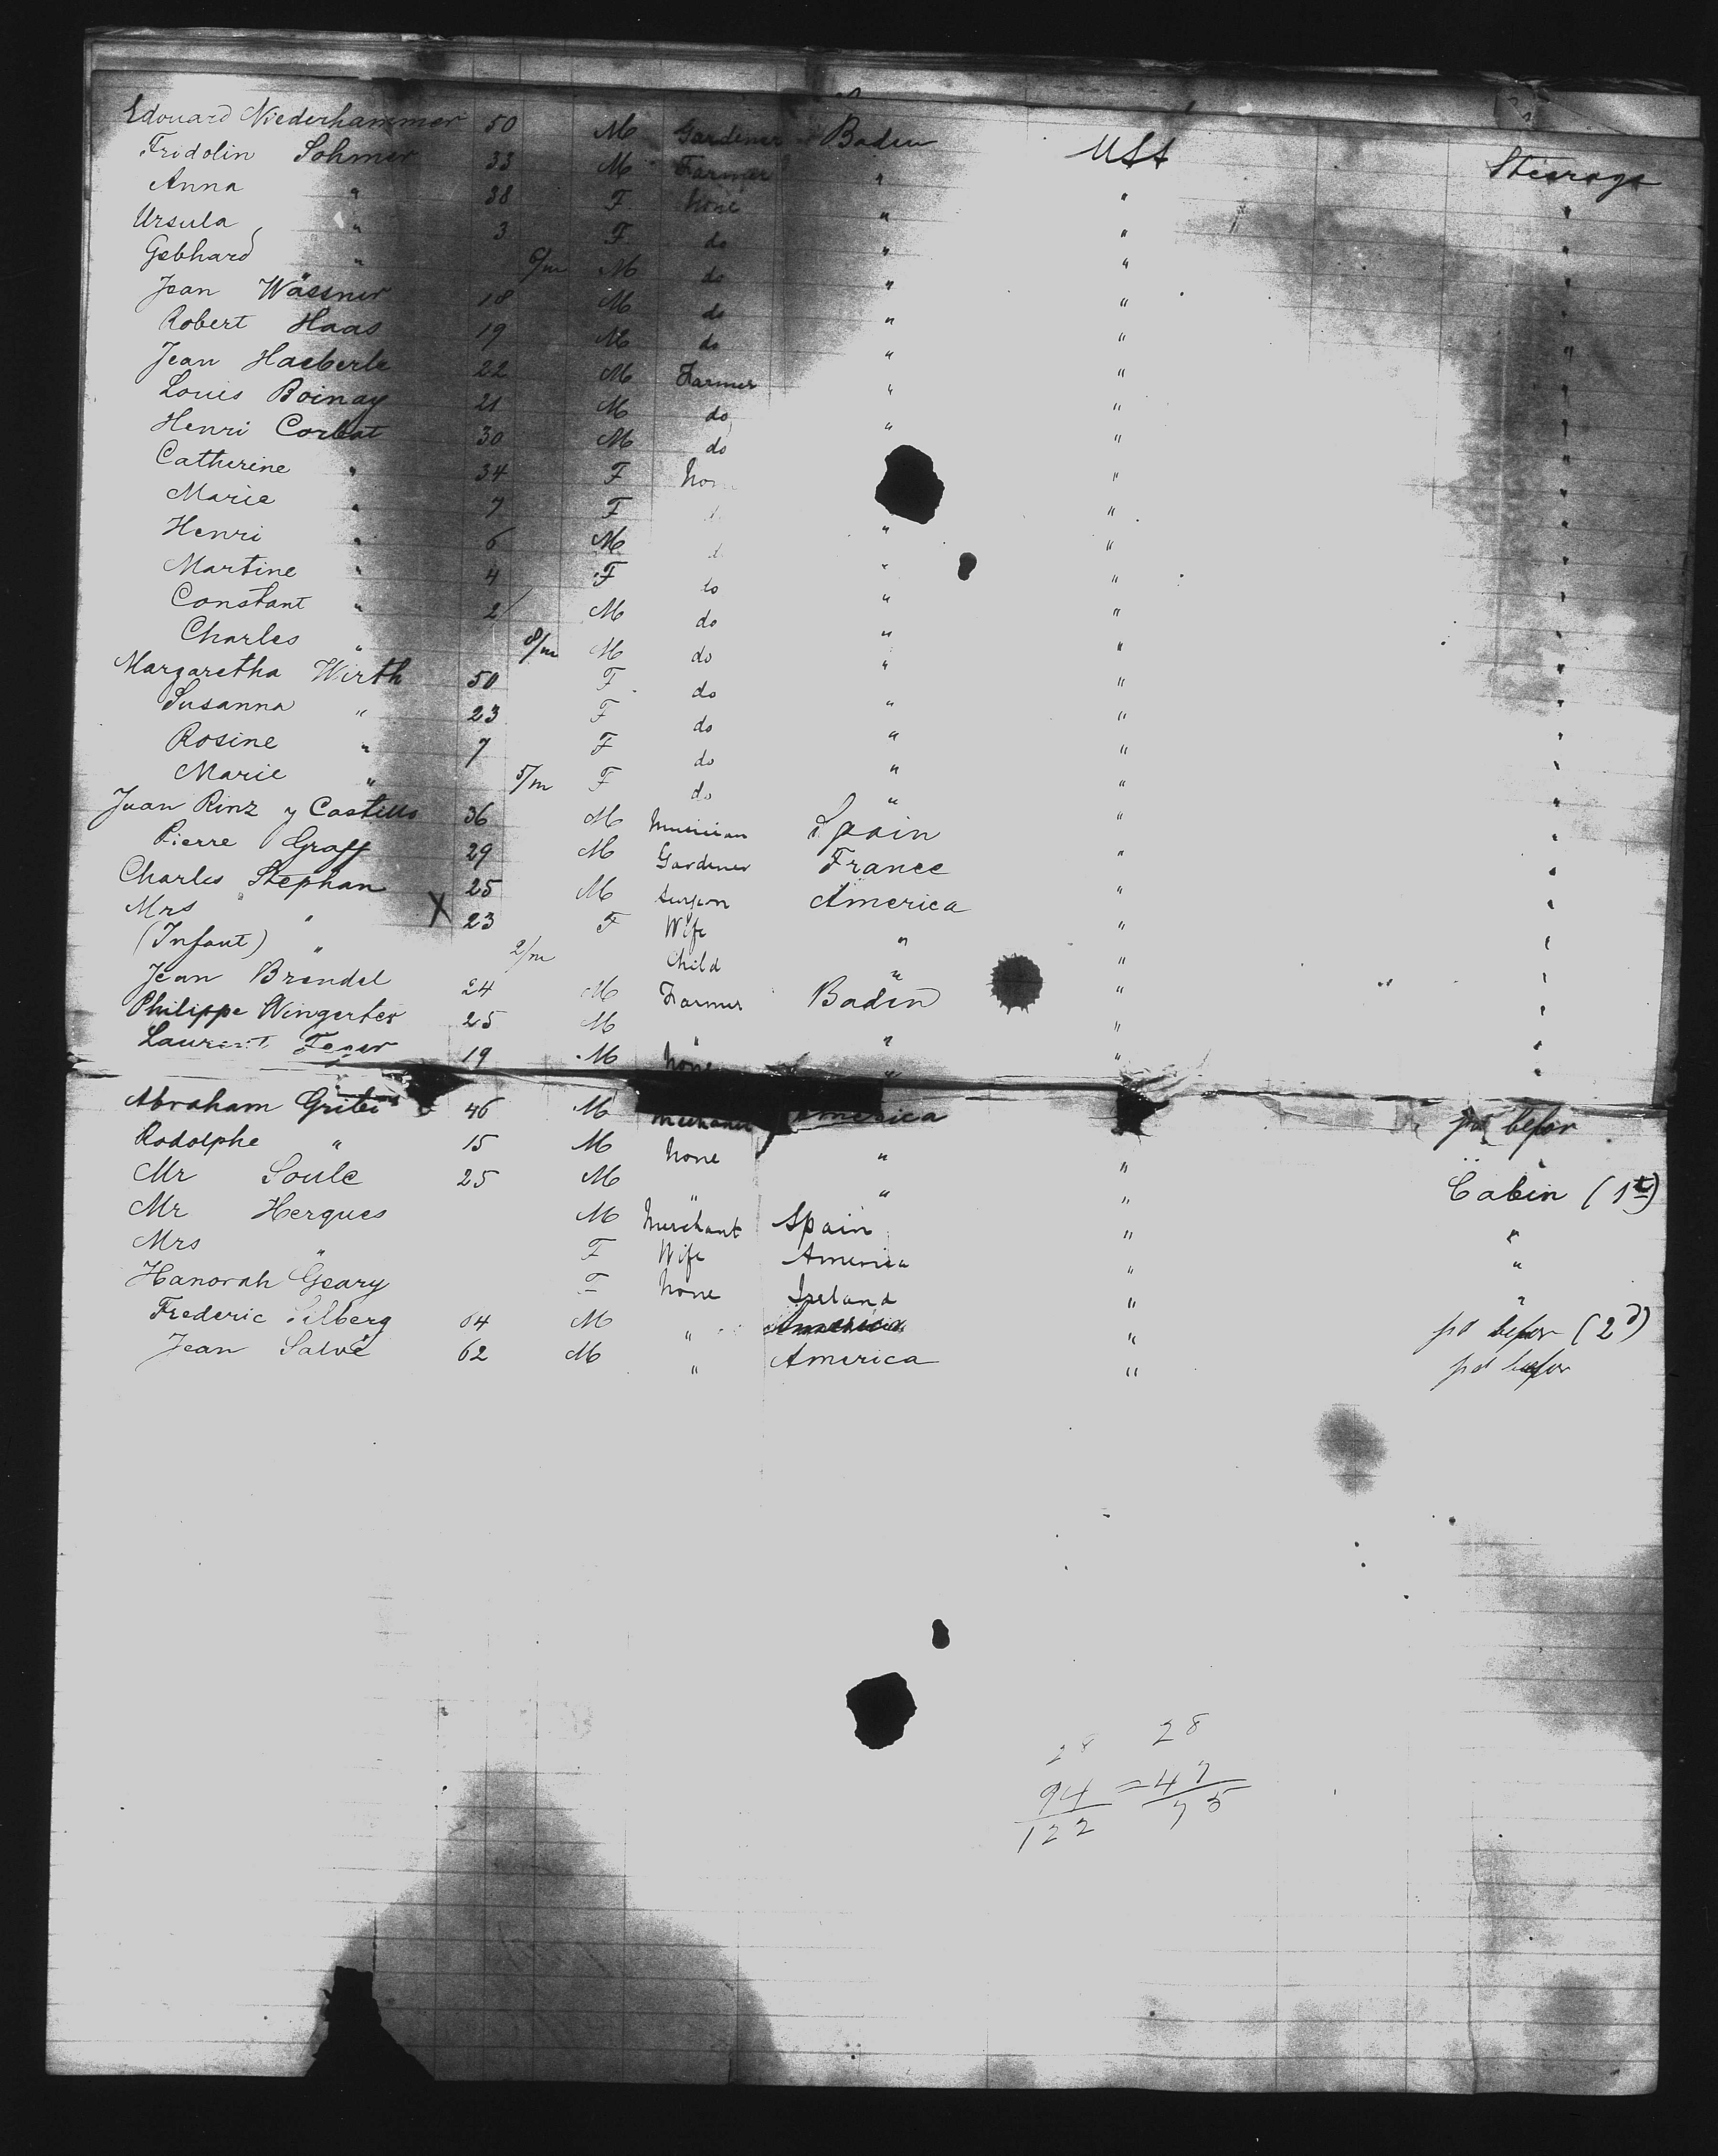 Edouard Niederhammer 50 M Gardener Baden USA Steerage
Fridolin Sohmer 33 M Farmer " " "
Anna " 38 F none " "
Ursula " 3 F do " "
Gebhard " 6/m M do " "
Jean Wässner 18 M do " "
Robert Haas 19 M do " " "
Jean Haeberle 22 M Farmer " " "
Louis Boinay 21 M do " " "
Henri Corbat 30 M do " "
Catherine " 34 F " "
Marie " 7 F " "
Henri " 6 M " " "
Martine " 4 F do " " "
Constant " 2 M do " " "
Charles " 8/m M do " " "
Margaretha Wirth 50 F do " " "
Susanna " 23 F do " " "
Rosine " 7 F do " " "
Marie " 5/m F do " " "
Juan Rinz y Castillo 36 M Musician Spain " "
Pierre Graff 29 M Gardener France " "
Charles Stephan 25 M Surgeon America " "
Mrs " X 23 F Wife " " "
(Infant) " 2/m Child " " "
Jean Brendel 24 M Farmer Baden " " "
Philippe Wingerter 25 M " " " "
Laurent 19 M none " " "
Abraham 46 M America pd befor
Rodolphe " 15 M none " "
Mr Soule 25 M " " " Cabin (1st)
Mr Hergues M Merchant Spain " "
Mrs " F Wife America " "
Hanorah Geary F none Ireland " "
Frederic Silberg 64 M " " pd befor (2d)
Jean Salvé 62 M " America " pd befor
28 28
94 = 47
122 75